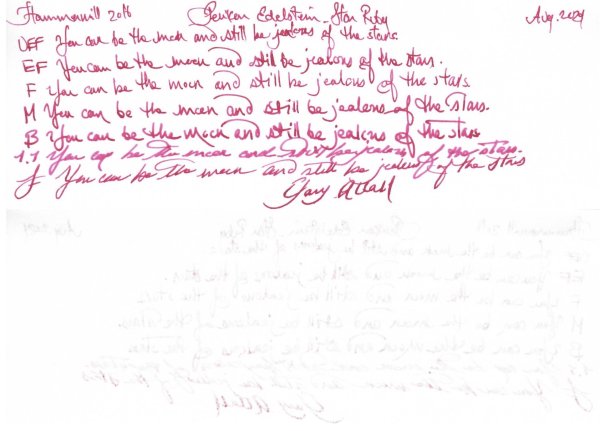 Hammermill 20lb Pelikan Edelstein - Star Ruby Aug. 2024
UEF You can be the moon and still be jealous of the stars.
EF You can be the moon and still be jealous of the stars.
F You can be the moon and still be jealous of the stars.
M You can be the moon and still be jealous of the stars.
B You can be the moon and still be jealous of the stars
1.1 You can be the moon and still be jealous of the stars.
J You can be the moon and still be jealous of the stars
Gary Allan